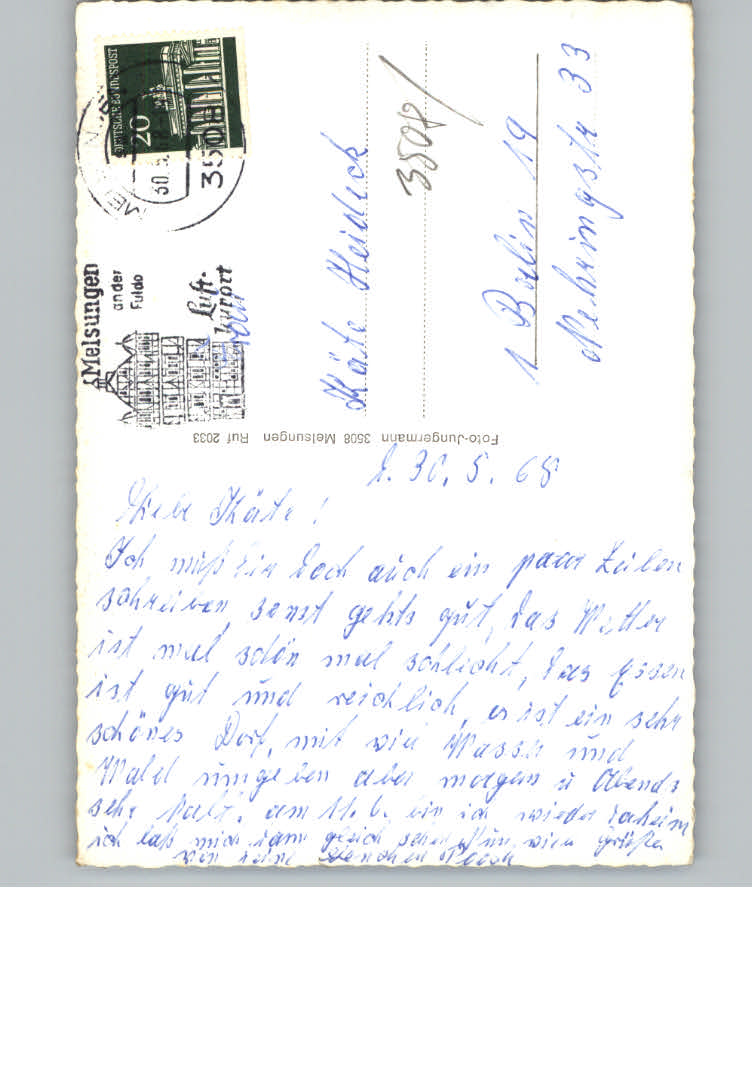 DEUTSCHE BUNDESPOST
20
30.5.68
3508
Melsungen
an der
Fulda
Luft-
kurort
Frau
Käte Heideck
3508
1 Berlin 19
Nehringstr 33
Foto-Jungermann 3508 Melsungen Ruf 2033
d. 30. 5. 68
Liebe Käte!
Ich muß Dir doch auch ein paar Zeilen
schreiben, sonst gehts gut, das Wetter
ist mal schön mal schlicht, das Essen
ist gut und reichlich, es ist ein sehr
schönes Dorf, mit viel Wasser und
Wald umgeben aber morgens u Abends
sehr kalt. am 11. 6. bin ich wieder daheim
ich laß mich dann gleich sehen Nun viele Grüße
von deine